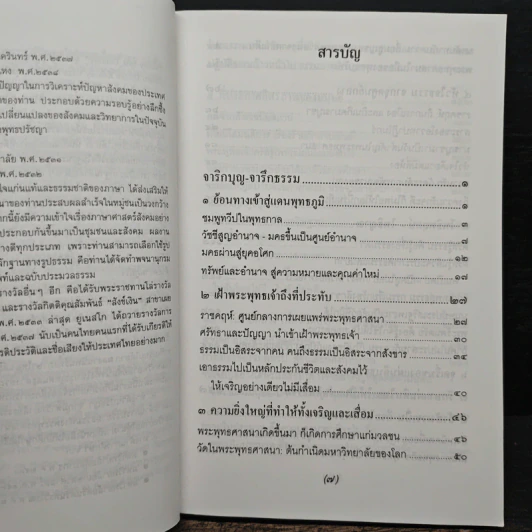 ครินทร์ พ.ศ.๒๕๓๗
แหง พ.ศ.๒๕๓๘
ปัญญาในการวิเคราะห์ปัญหาสังคมของประเทศ
ของท่าน ประกอบด้วยความรอบรู้อย่างลึกซึ้ง
เปลี่ยนแปลงของสังคมและวิทยาการในปัจจุบัน
พุทธปรัชญา
าลัย พ.ศ.๒๕๓๑
พ.ศ.๒๕๓๒
ใจแก่นแท้และธรรมชาติของภาษา ได้ส่งเสริมให้
นาของท่านประสบผลสำเร็จในหมู่ชนเป็นวงกว้าง
กนี้ยังมีความเข้าใจเรื่องภาษาศาสตร์สังคมอย่าง
ประกอบกันขึ้นมาเป็นชุมชนและสังคม ผลงาน
างดีทุกประเภท เพราะท่านสามารถเลือกใช้รูป
ลักฐานทางรูปธรรม คือท่านได้จัดทำพจนานุกรม
พท์และฉบับประมวลธรรม
รางวัลอื่นๆ อีก คือได้รับพระราชทานโล่รางวัล
และรางวัลกิตติคุณสัมพันธ์ "สังข์เงิน" สาขาเผย
พ.ศ.๒๕๓๓ ล่าสุด ยูเนสโก ได้ถวายรางวัลการ
๒๕๓๗ นับเป็นคนไทยคนแรกที่ได้รับเกียรติให้
รติประวัติและชื่อเสียงให้ประเทศไทยอย่างมาก
สารบัญ
จาริกบุญ-จารึกธรรม ๑
๑ ย้อนทางเข้าสู่แดนพุทธภูมิ ๑
ชมพูทวีปในพุทธกาล ๓
วัชชีสูญอำนาจ - มคธขึ้นเป็นศูนย์อำนาจ ๗
มคธผ่านสู่ยุคอโศก ๑๒
ทรัพย์และอำนาจ สู่ความหมายและคุณค่าใหม่ ๑๗
๒ เฝ้าพระพุทธเจ้าถึงที่ประทับ ๒๗
ราชคฤห์: ศูนย์กลางการเผยแพร่พระพุทธศาสนา ๒๗
ศรัทธาและปัญญา นำเข้าเฝ้าพระพุทธเจ้า ๓๐
ธรรมเป็นอิสระจากคน คนถึงธรรมเป็นอิสระจากสังขาร ๓๔
เอาธรรมไปเป็นหลักประกันชีวิตและสังคมไว้
ให้เจริญอย่างเดียวไม่มีเสื่อม ๔๐
๓ ความยิ่งใหญ่ที่ทำให้ทั้งเจริญและเสื่อม ๔๖
พระพุทธศาสนาเกิดขึ้นมา ก็เกิดการศึกษาแก่มวลชน ๔๖
วัดในพระพุทธศาสนา: ต้นกำเนิดมหาวิทยาลัยของโลก ๕๐
(๗)